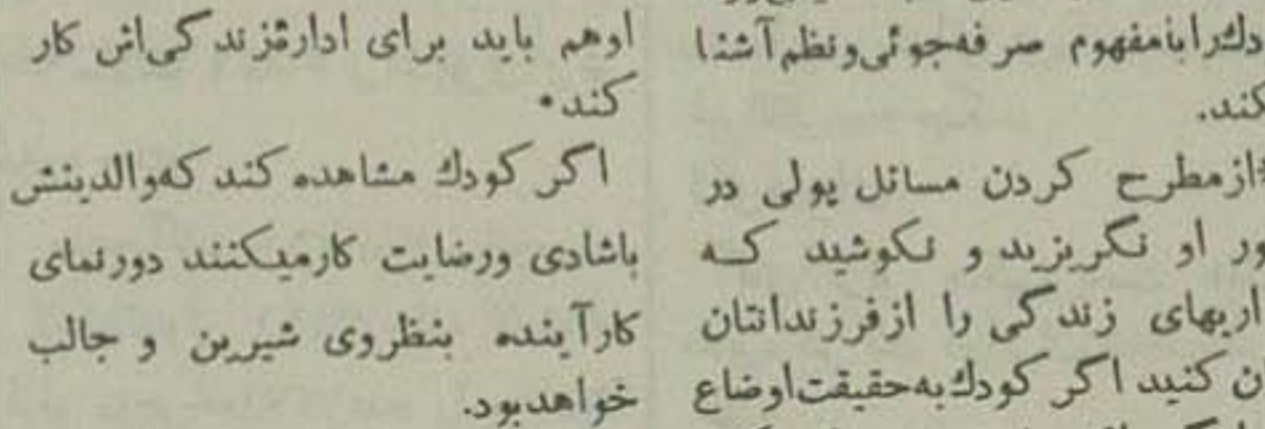 دك را بامفهوم صرفه‌جوئی و نظم آشنا
کند.
از مطرح کردن مسائل پولی در
او نگریزید و نکوشید که
زندگی را از فرزندانتان
کنید اگر کودك به‌حقیقت اوضاع
اوهم باید برای ادارهٔ زندگی‌اش کار
کند.
اگر کودك مشاهده کند که والدینش
باشادی ورضایت کارمیکنند دورنمای
کارآینده بنظروی شیرین و جالب
خواهدبود.